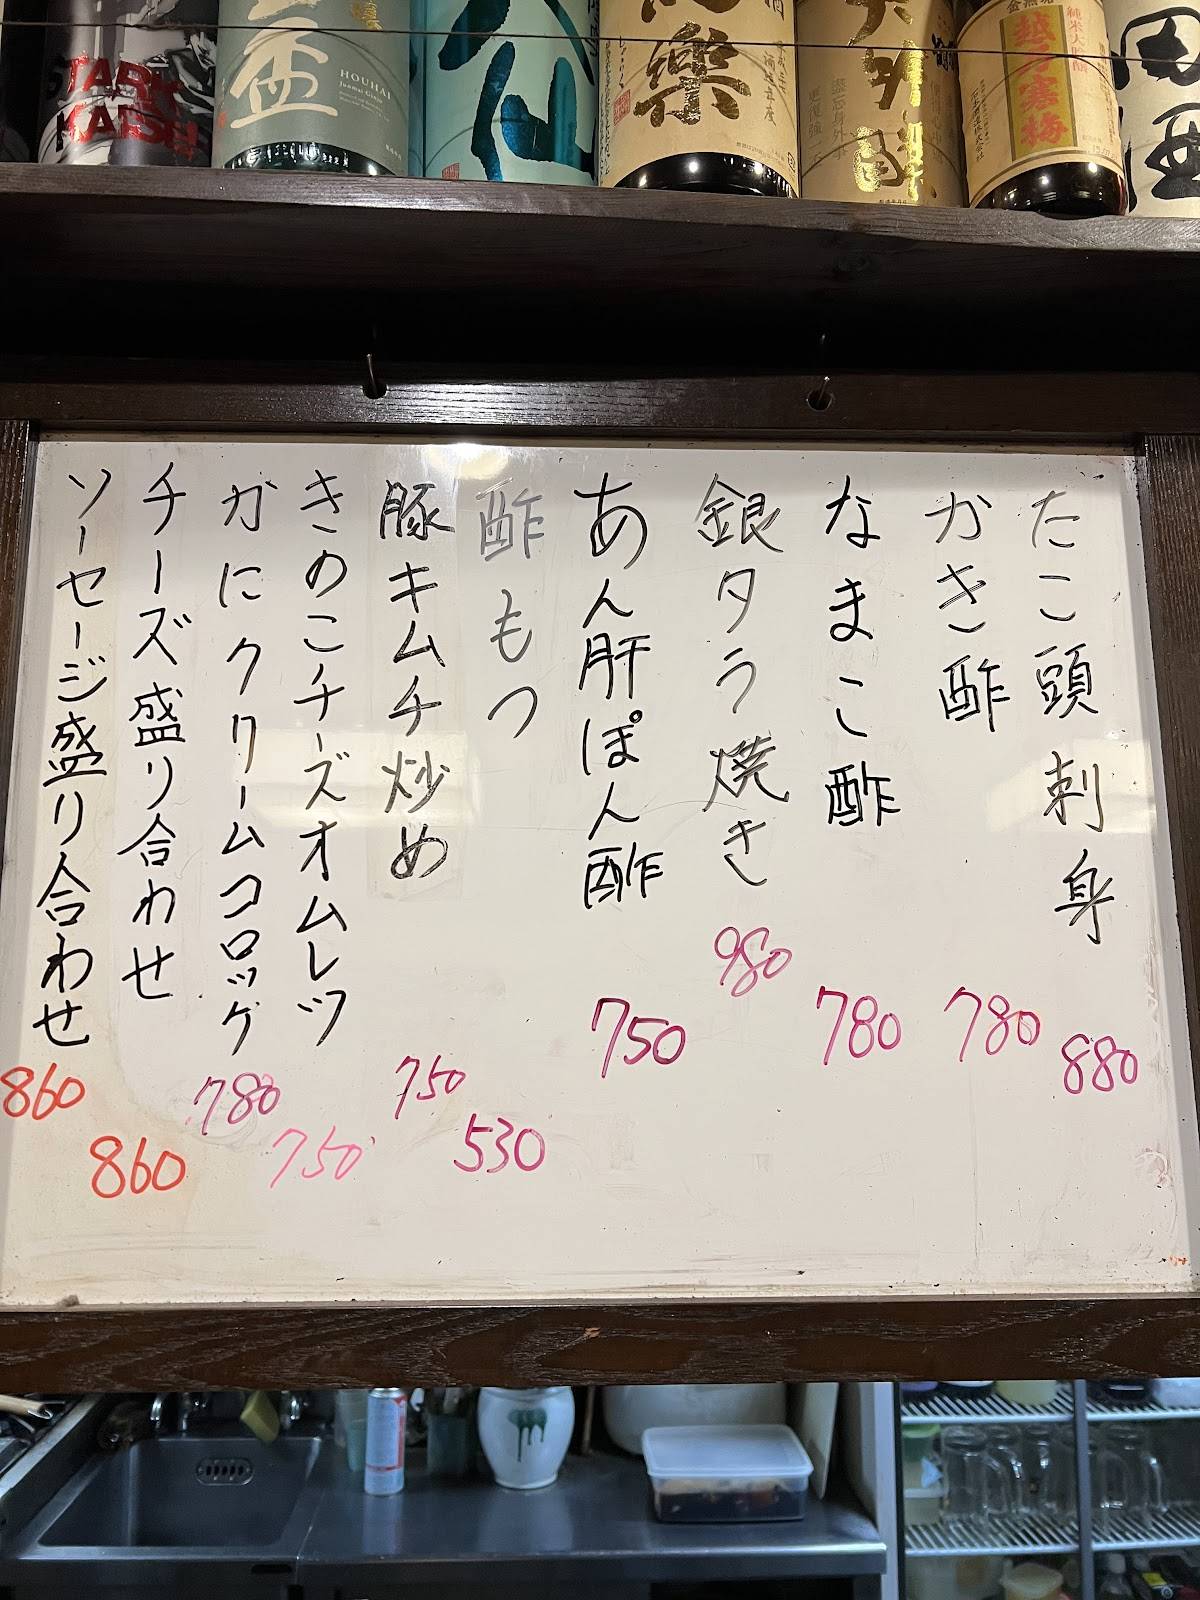 HOUHAI
Junmai Ginjo
八仙
純米吟醸
越乃寒梅
田酒
たこ頭刺身 880
かき酢 780
なまこ酢 780
銀タラ焼き 980
あん肝ぽん酢 750
酢もつ 530
豚キムチ炒め 750
きのこチーズオムレツ 750
かにクリームコロッケ 780
チーズ盛り合わせ 860
ソーセージ盛り合わせ 860